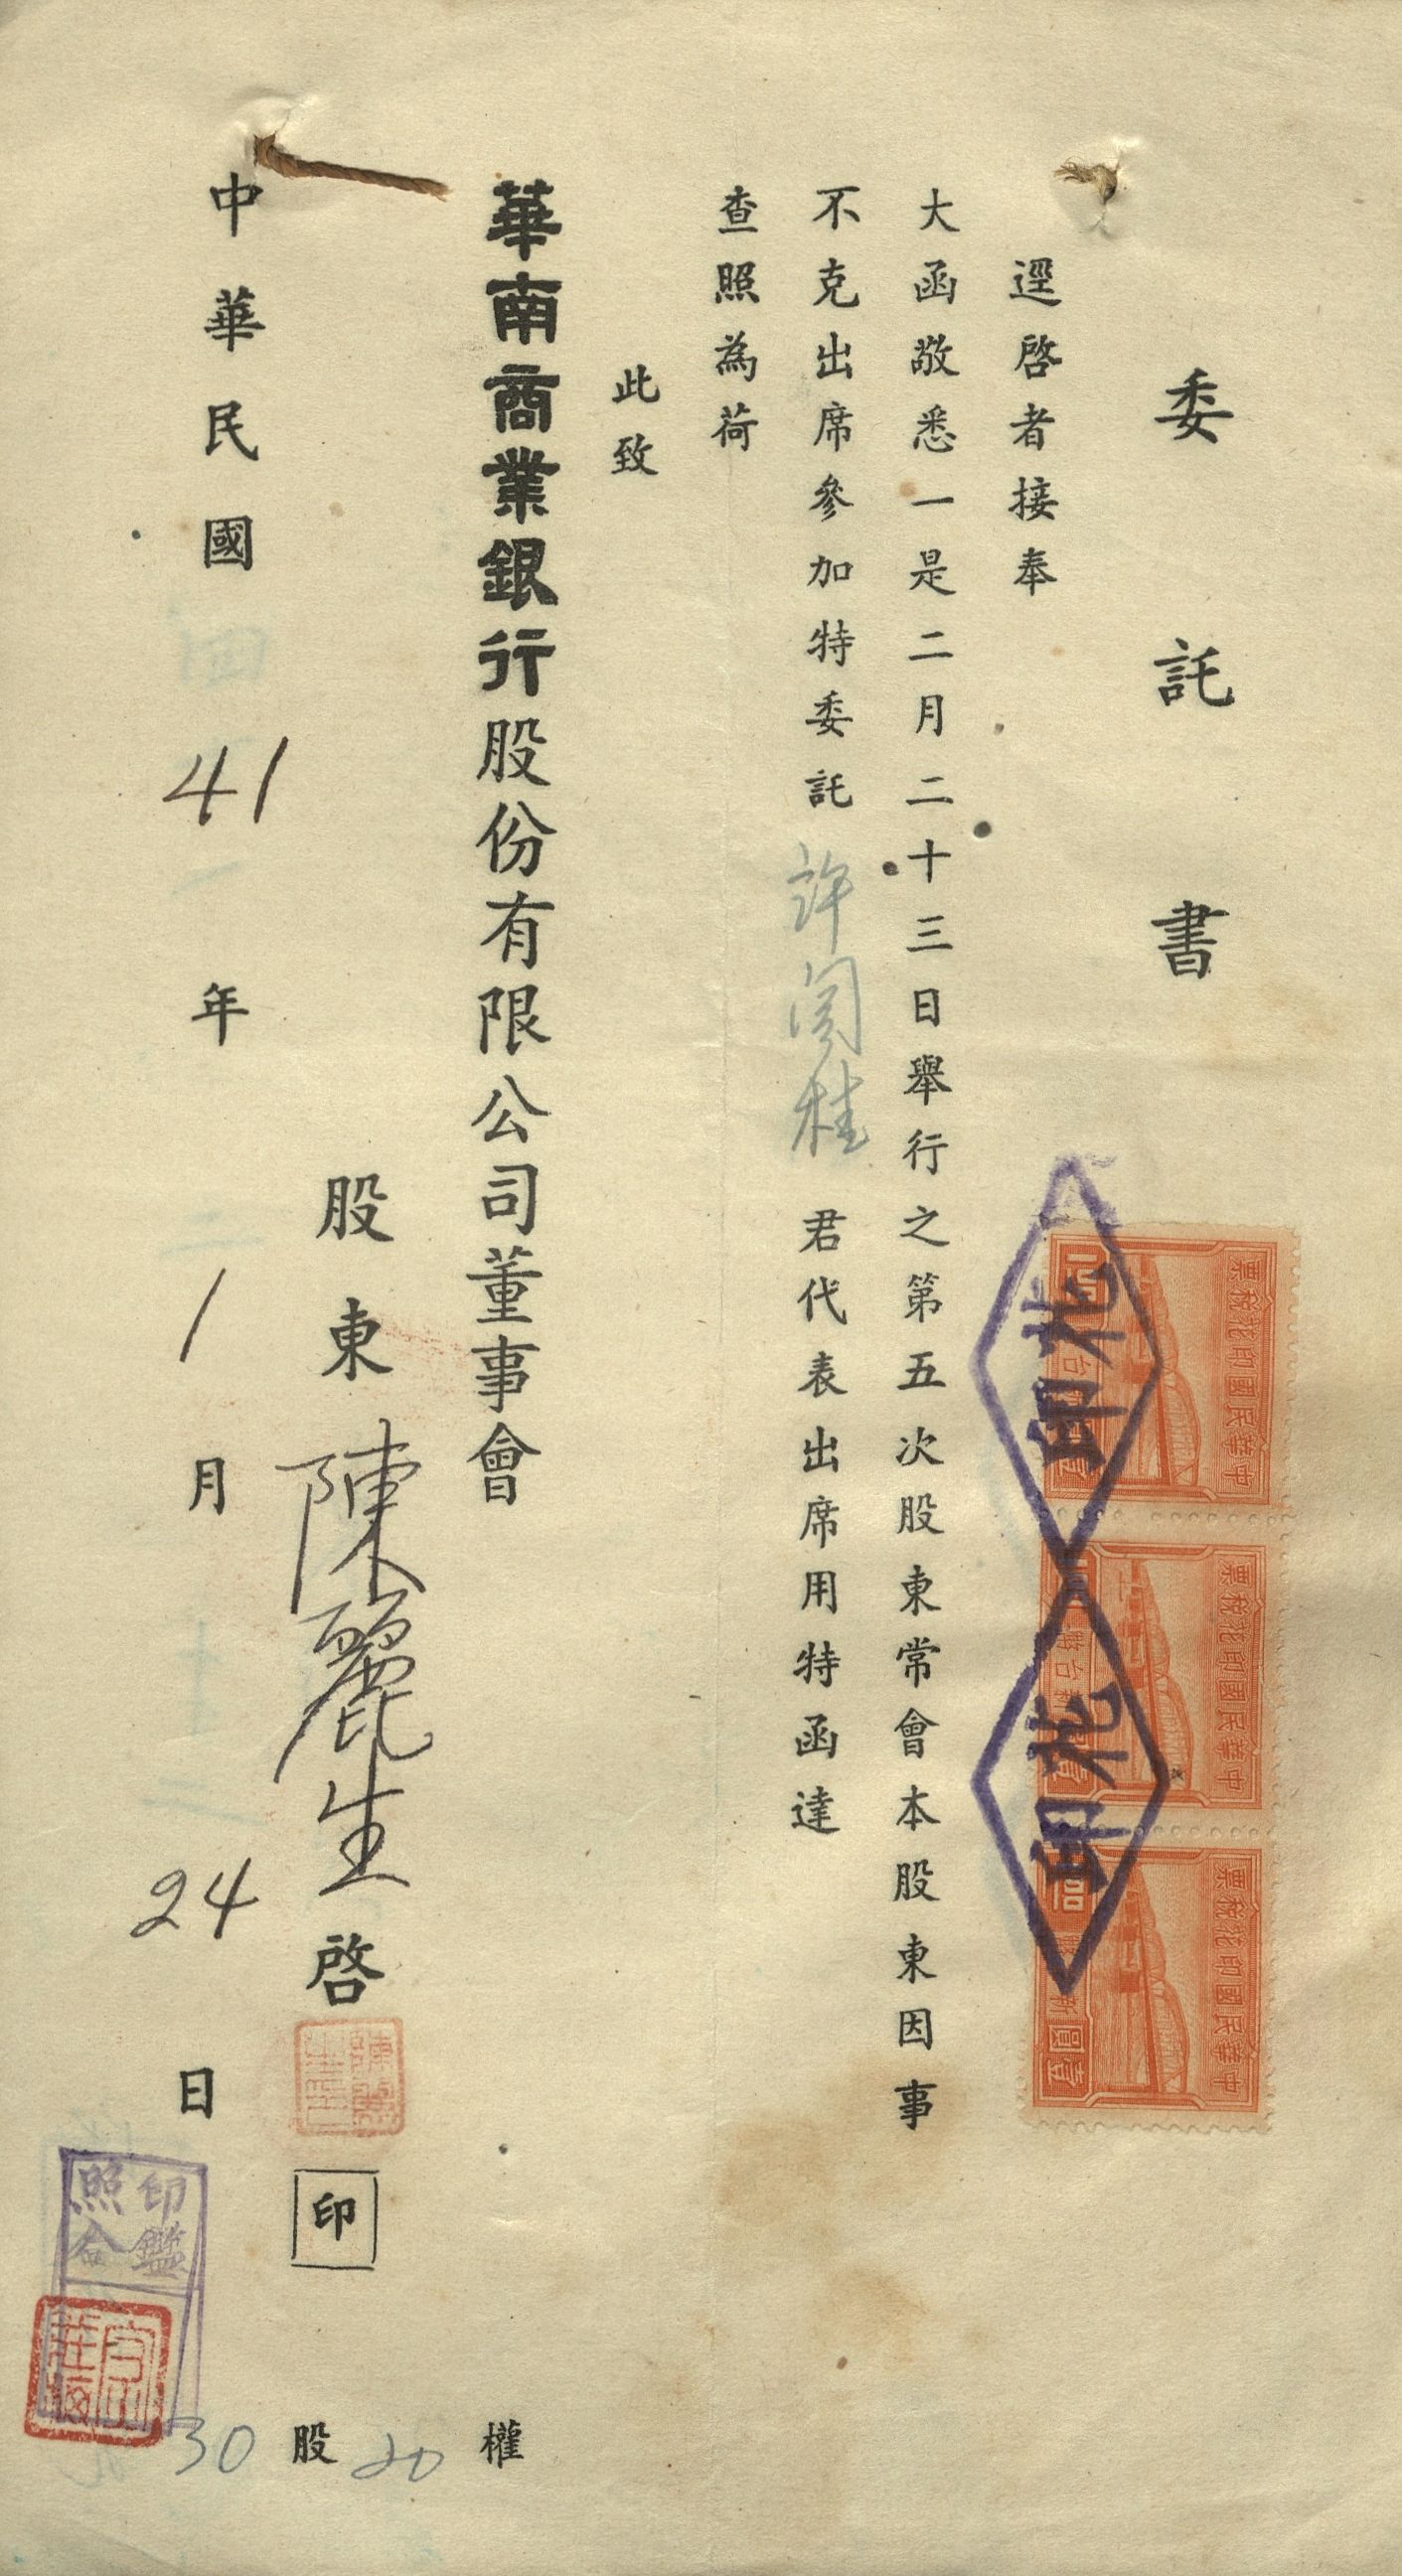 委託書
逕啓者接奉
大函敬悉一是二月二十三日舉行之第五次股東常會本股東因事
不克出席參加特委託許闵桂君代表出席用特函達
查照為荷
此致
華南商業銀行股份有限公司董事會
股東陳麗生啓印
中華民國41年1月24日
30股20權
中華民國印花稅票
中華民國印花稅票
中華民國印花稅票
印花
印花
印鑑
照合